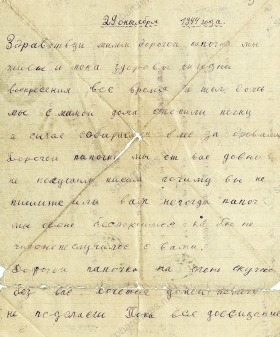 29 октября 1944 года.
Здравствуй милый дорогой папочка мы
живы и пока здоровы сегодня
воскресения все время и мы дома
мы с мамой дома топили печку
а сичас собираемся за дровами
Дорогой папочка мы от вас давно
не получали письма почиму вы не
пишите или вам некогда папоч
мы очень беспокоимся как бы не
чиво неслучилос с вами.
Дорогой папочка на очень скучно
без вас хочется
не поделаеш Пока все досвидание